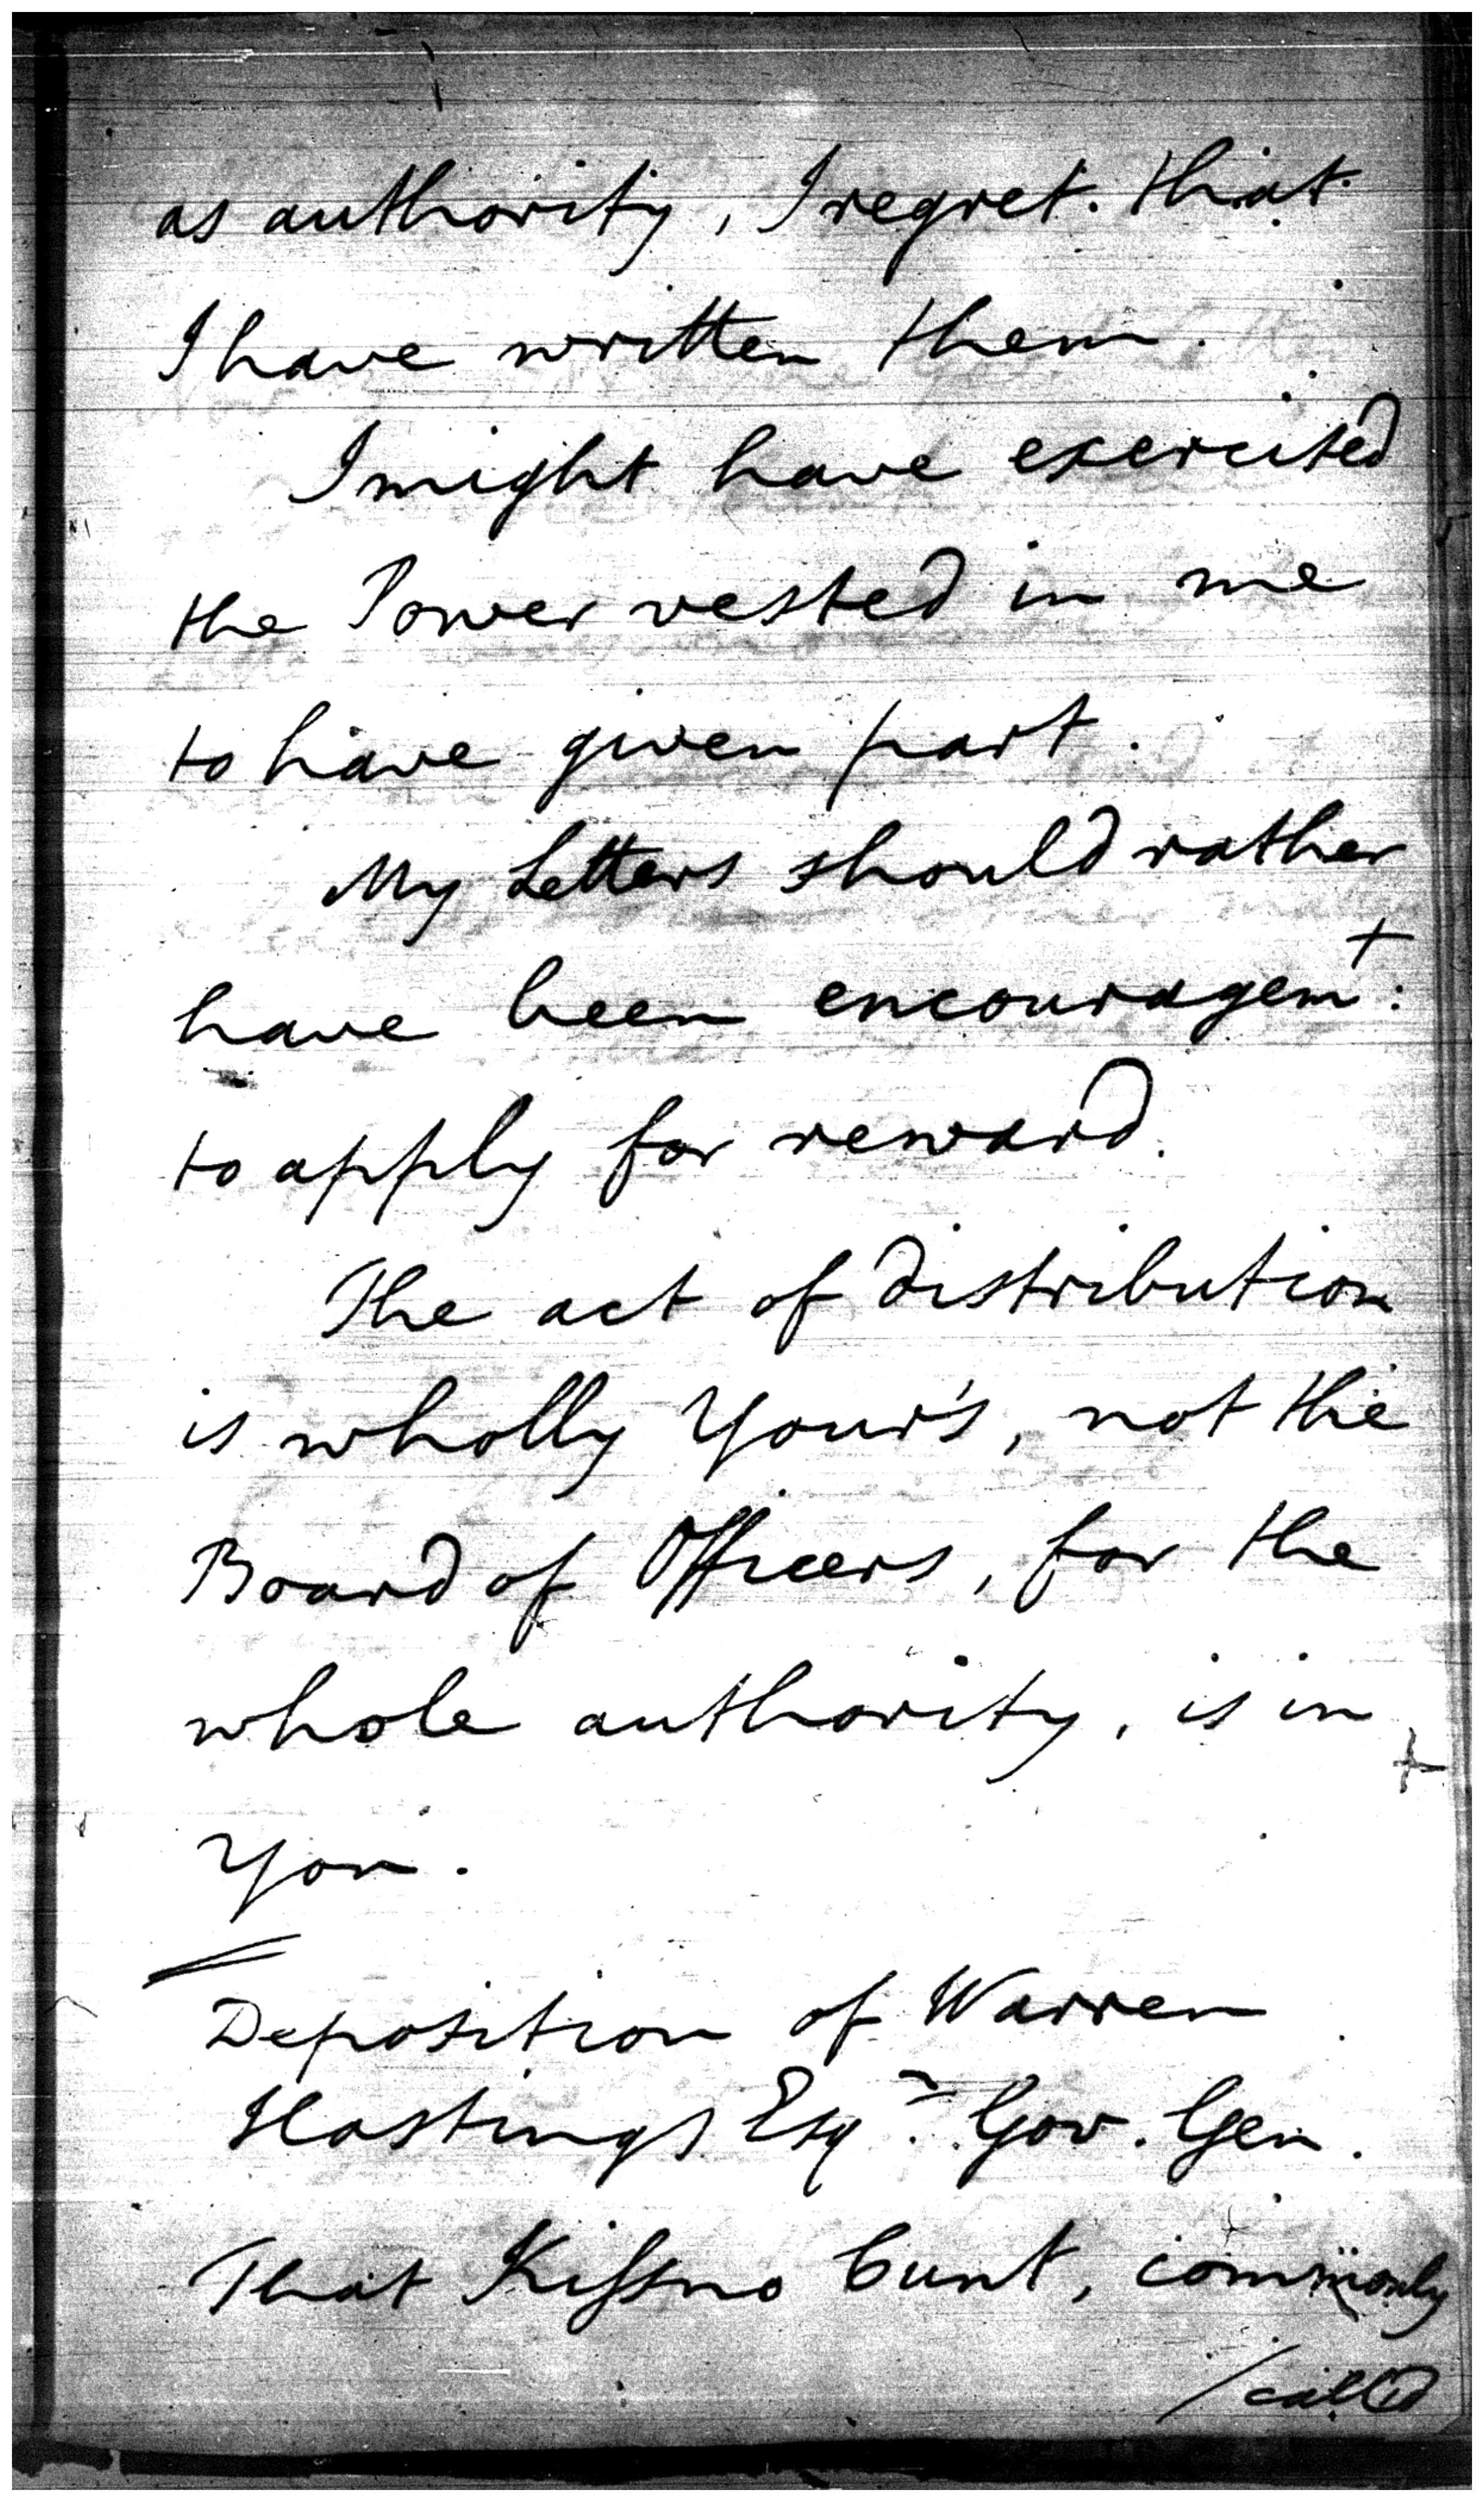 as authority, I regret that
I have written them.
I might have exercised
the Power vested in me
to have given part.
My Letters should rather
have been encouragemt:
to apply for reward.
The act of distribution
is wholly Your's, not the
Board of Officers, for the
whole authority, is in
You.
Deposition of Warren
Hastings Esqr. Gov. Gen.
That Kissno Cunt, commonly
/call'd